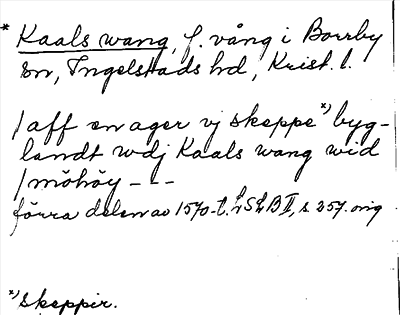 * Kaals wang, f. vång i Borrby
sn, Ingelstads hd, Krist. l.
/aff en ager vj skeppe *) byg-
landt wdj Kaals wang wid
/möhöy - - -
förra delen av 1570-t. SkB II, s. 257. orig
*) skeppir.